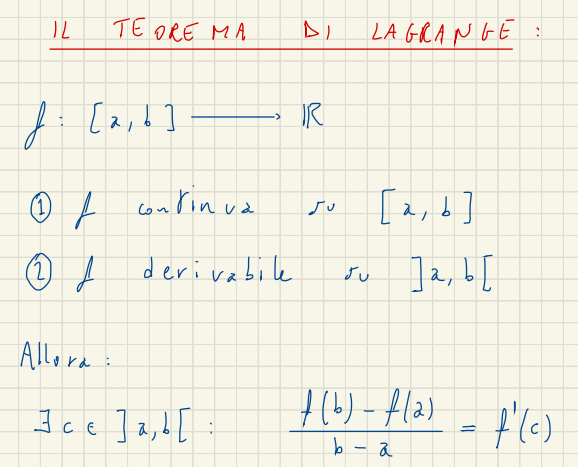 IL TEOREMA DI LAGRANGE :
f : [a, b] ⟶ ℝ
① f continua su [a, b]
② f derivabile su ]a, b[
Allora :
∃ c ∈ ]a, b[ : \frac{f(b) - f(a)}{b - a} = f'(c)